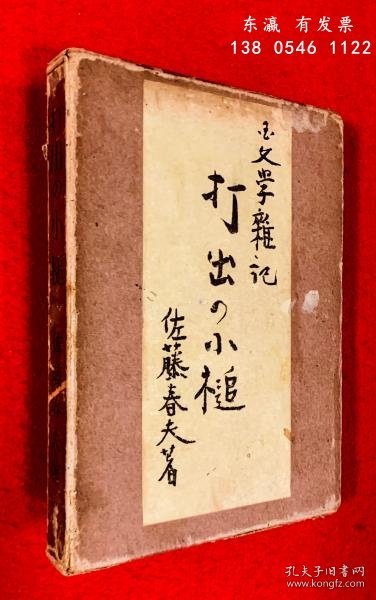 东瀛 有发票
138 0546 1122
文學雜記
打出の小槌
佐藤春夫著
www.kongfz.com
孔夫子旧书网